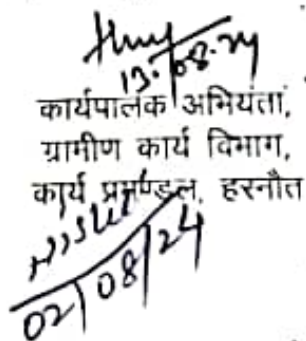 13.08.24
कार्यपालक अभियंता,
ग्रामीण कार्य विभाग,
कार्य प्रमण्डल, हरनौत
02/08/24